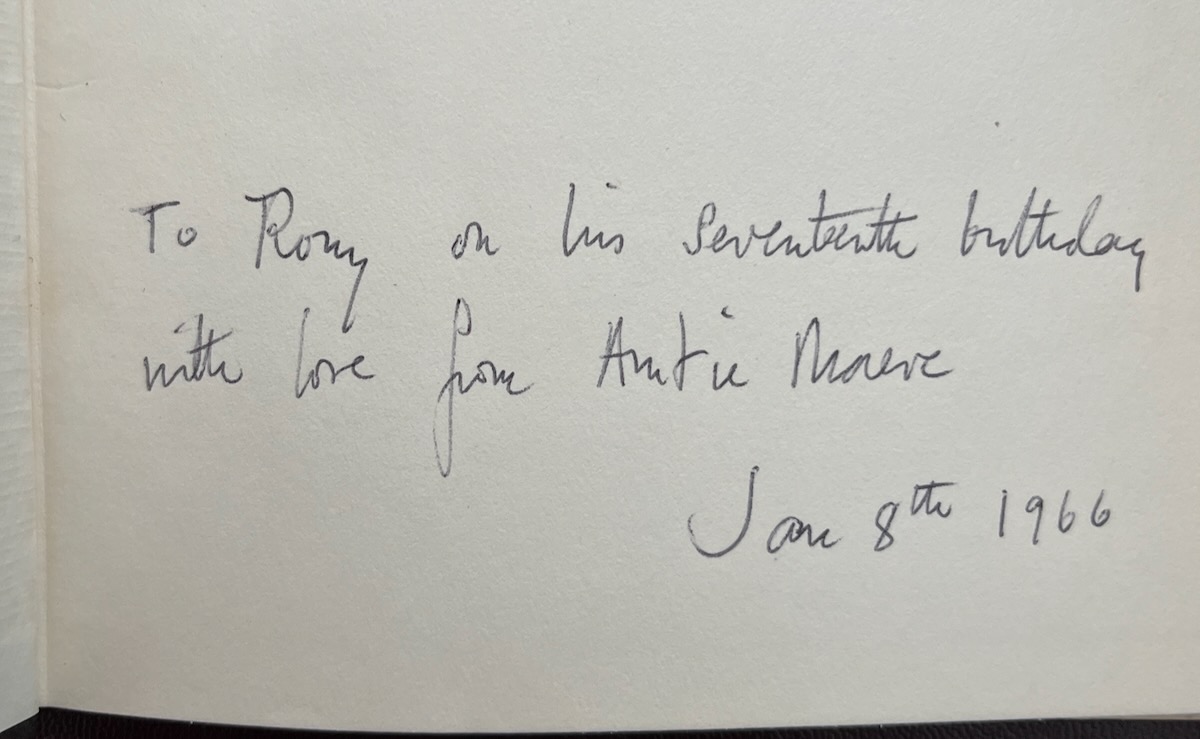 To Rony on his seventeenth birthday
with love from Auntie Maeve
Jan 8th 1966